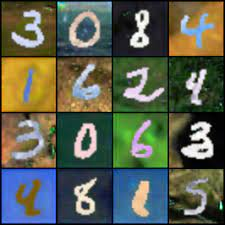 3 0 8 4
1 6 2 4
3 0 6 3
4 8 1 5